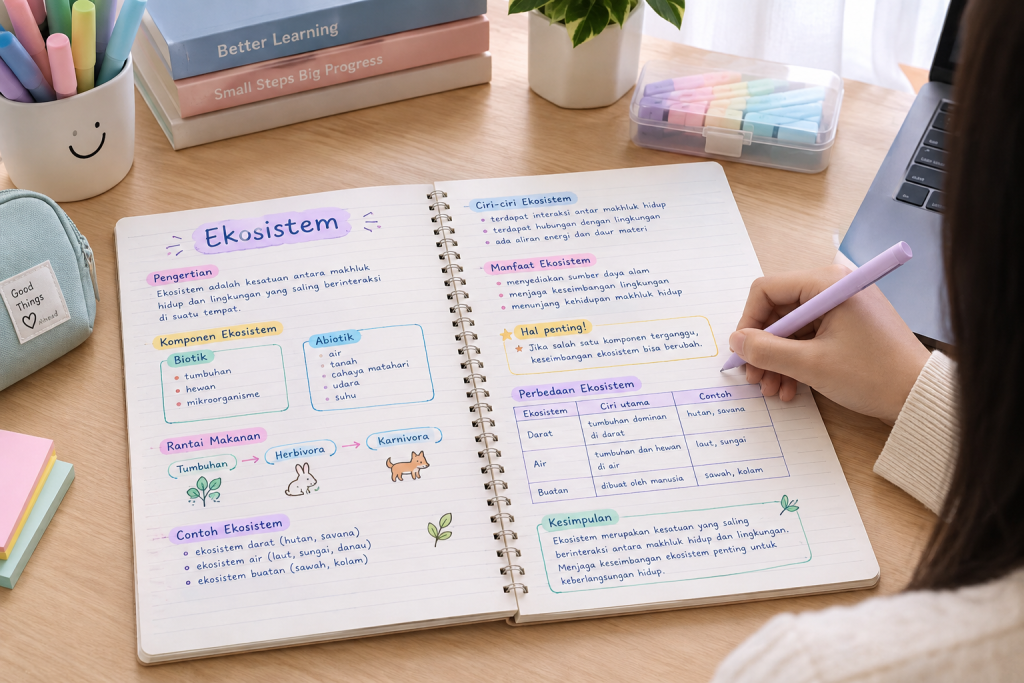 Better Learning
Small Steps Big Progress
Good
Things
ahead
Ekosistem
Pengertian
Ekosistem adalah kesatuan antara makhluk
hidup dan lingkungan yang saling berinteraksi
di suatu tempat.
Komponen Ekosistem
Biotik
tumbuhan
hewan
mikroorganisme
Abiotik
air
tanah
cahaya matahari
udara
suhu
Rantai Makanan
Tumbuhan → Herbivora → Karnivora
Contoh Ekosistem
ekosistem darat (hutan, savana)
ekosistem air (laut, sungai, danau)
ekosistem buatan (sawah, kolam)
Ciri-ciri Ekosistem
terdapat interaksi antar makhluk hidup
terdapat hubungan dengan lingkungan
ada aliran energi dan daur materi
Manfaat Ekosistem
menyediakan sumber daya alam
menjaga keseimbangan lingkungan
menunjang kehidupan makhluk hidup
Hal penting!
Jika salah satu komponen terganggu,
keseimbangan ekosistem bisa berubah.
Perbedaan Ekosistem
Ekosistem Ciri utama Contoh
Darat tumbuhan dominan hutan, savana
di darat
Air tumbuhan dan hewan laut, sungai
di air
Buatan dibuat oleh manusia sawah, kolam
Kesimpulan
Ekosistem merupakan kesatuan yang saling
berinteraksi antara makhluk hidup dan lingkungan.
Menjaga keseimbangan ekosistem penting untuk
keberlangsungan hidup.